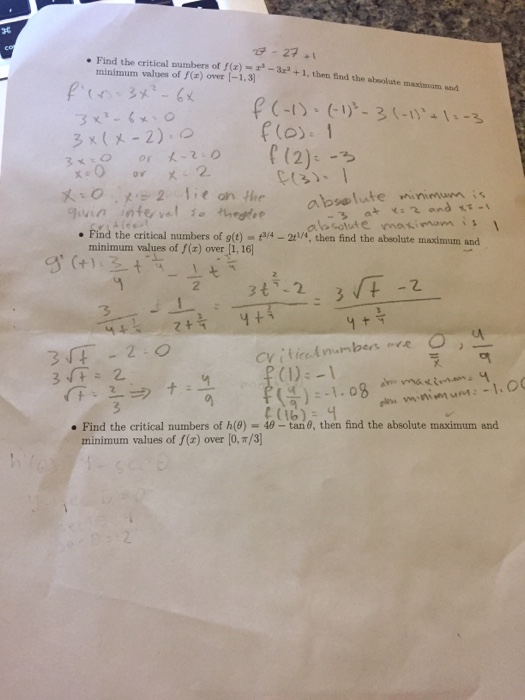 27 - 27 + 1
• Find the critical numbers of f(x) = x³ − 3x² + 1, then find the absolute maximum and
minimum values of f(x) over [−1, 3]
f'(x) = 3x² - 6x
3x² - 6x = 0
3x(x - 2) = 0
3x = 0 or x - 2 = 0
x = 0 or x = 2
x = 0, x = 2 lie on the
given interval so
f(-1) = (-1)³ - 3(-1)² + 1 = -3
f(0) = 1
f(2) = -3
f(3) = 1
absolute minimum is
-3 at x = 2 and x = -1
absolute maximum is 1
• Find the critical numbers of g(t) = t^{3/4} − 2t^{1/4}, then find the absolute maximum and
minimum values of f(x) over [1, 16]
g'(t) = 3/4 t^{-1/4} - 1/2 t^{-3/4}
3/(4t^{1/4}) - 1/(2t^{3/4}) = (3t^{2/4} - 2)/(4t^{3/4}) = (3√t - 2)/(4t^{3/4})
3√t - 2 = 0
3√t = 2
√t = 2/3 ⇒ t = 4/9
critical numbers are 0, 4/9
f(1) = -1
f(4/9) = -1.08
f(16) = 4
abs maximum = 4
abs minimum = -1.0
• Find the critical numbers of h(θ) = 4θ − tan θ, then find the absolute maximum and
minimum values of f(x) over [0, π/3]